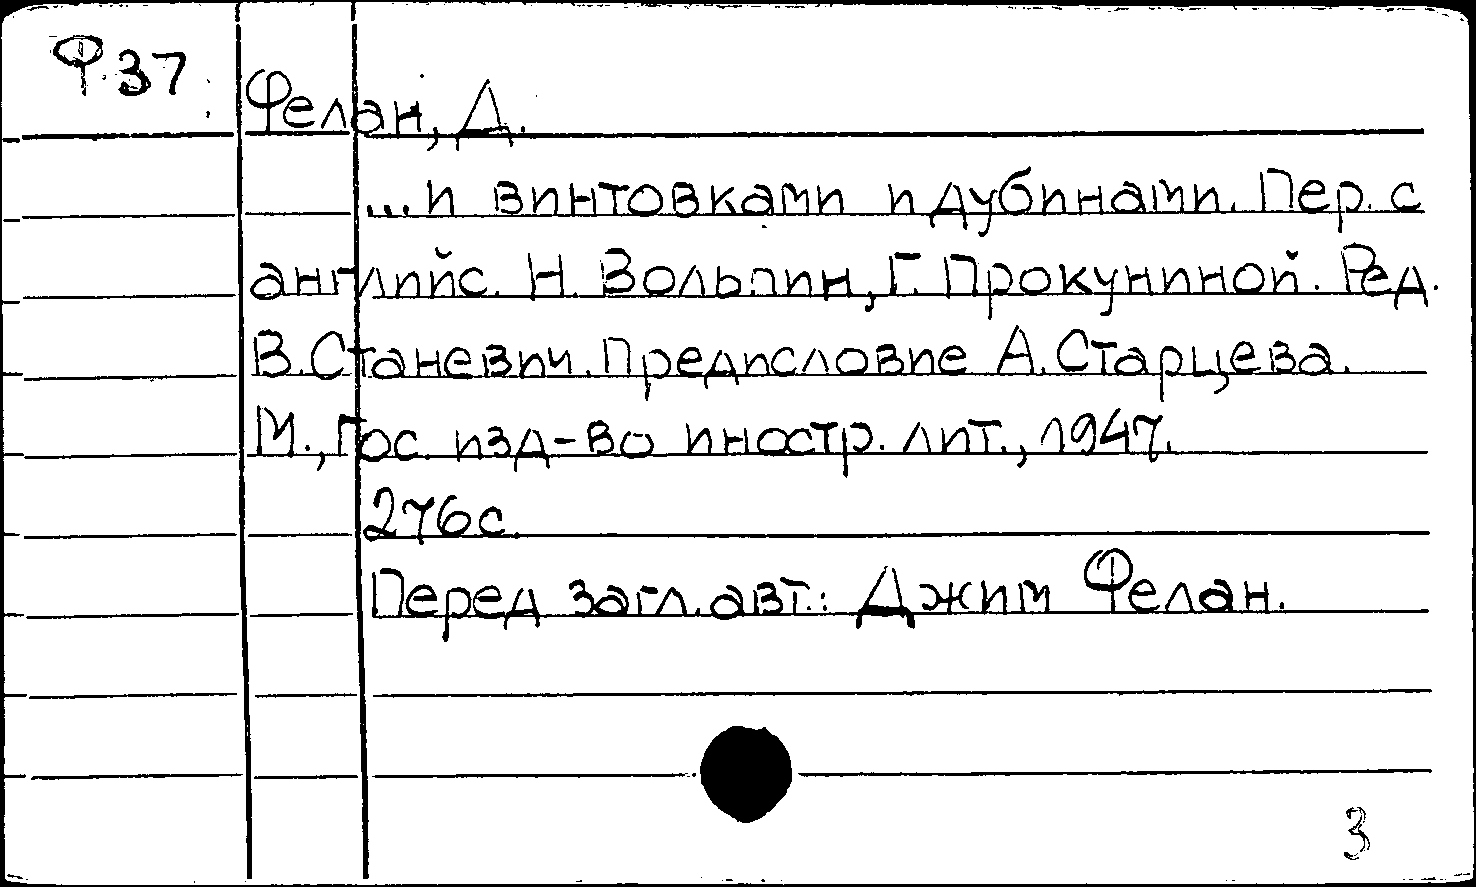 Ф.37
Фелан, Д.
...и винтовками и дубинами. Пер. с
английс. Н. Вольпин, Г. Прокуниной. Ред.
В. Станевич. Предисловие А. Старцева.
М., Гос. изд-во иностр. лит., 1947.
276с.
Перед загл. авт.: Джим Фелан.
3